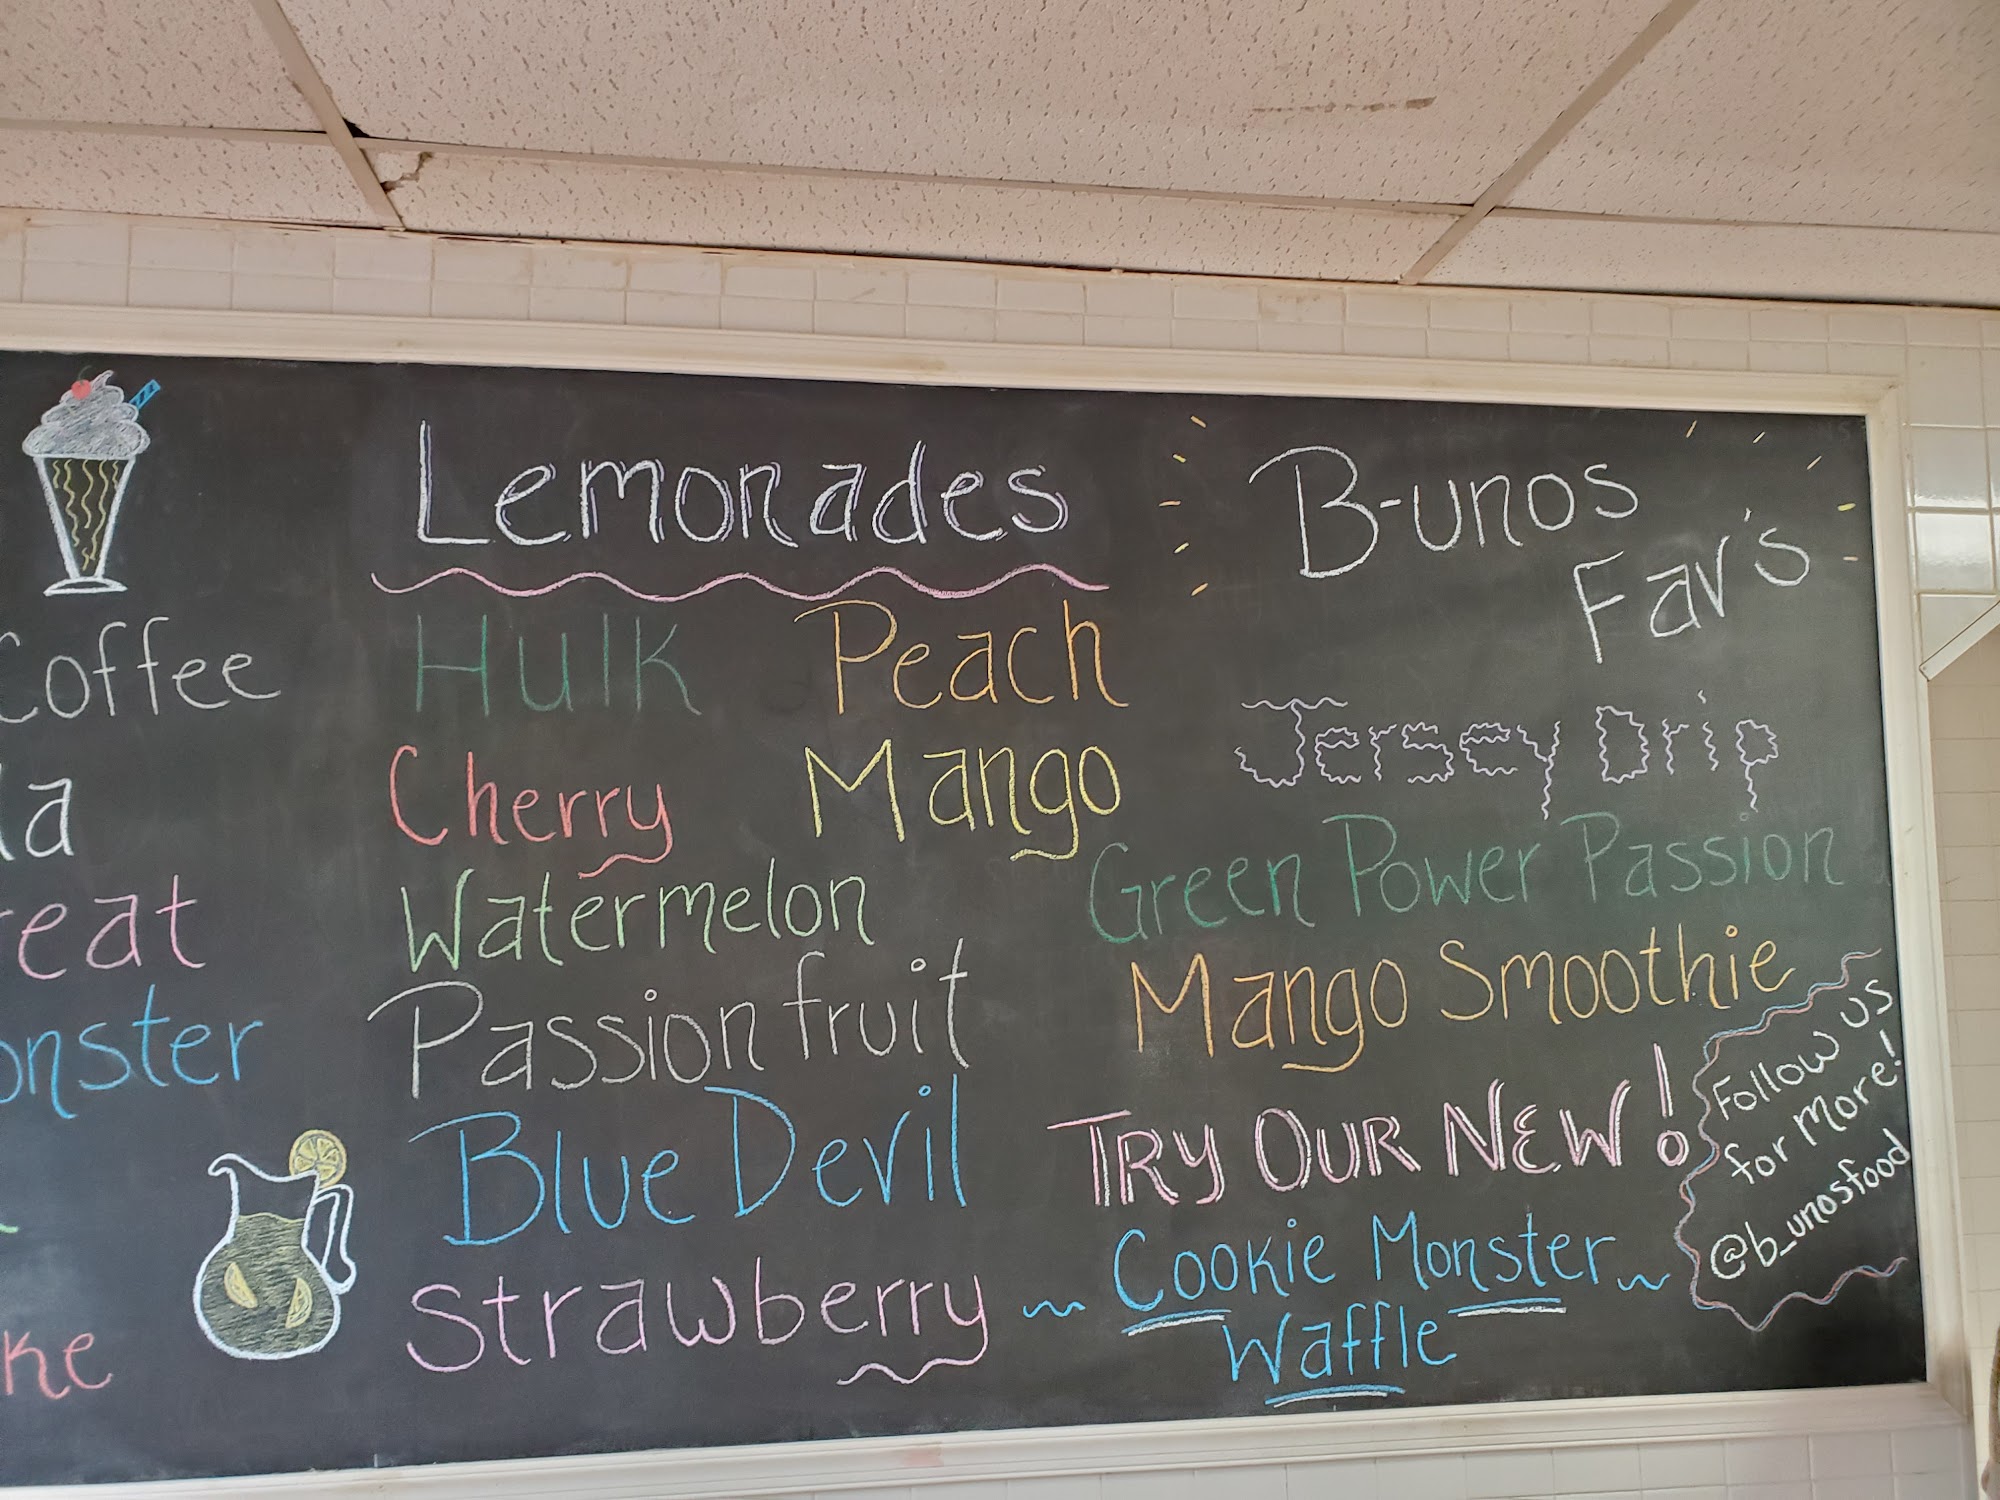 Coffee
eat
onster
ke
Lemonades
Hulk Peach
Cherry Mango
Watermelon
Passion fruit
Blue Devil
Strawberry
B-unos
Fav's
Jersey Drip
Green Power Passion
Mango Smoothie
TRY OUR NEW!
~ Cookie Monster ~
Waffle
Follow us
for more!
@b_unosfood